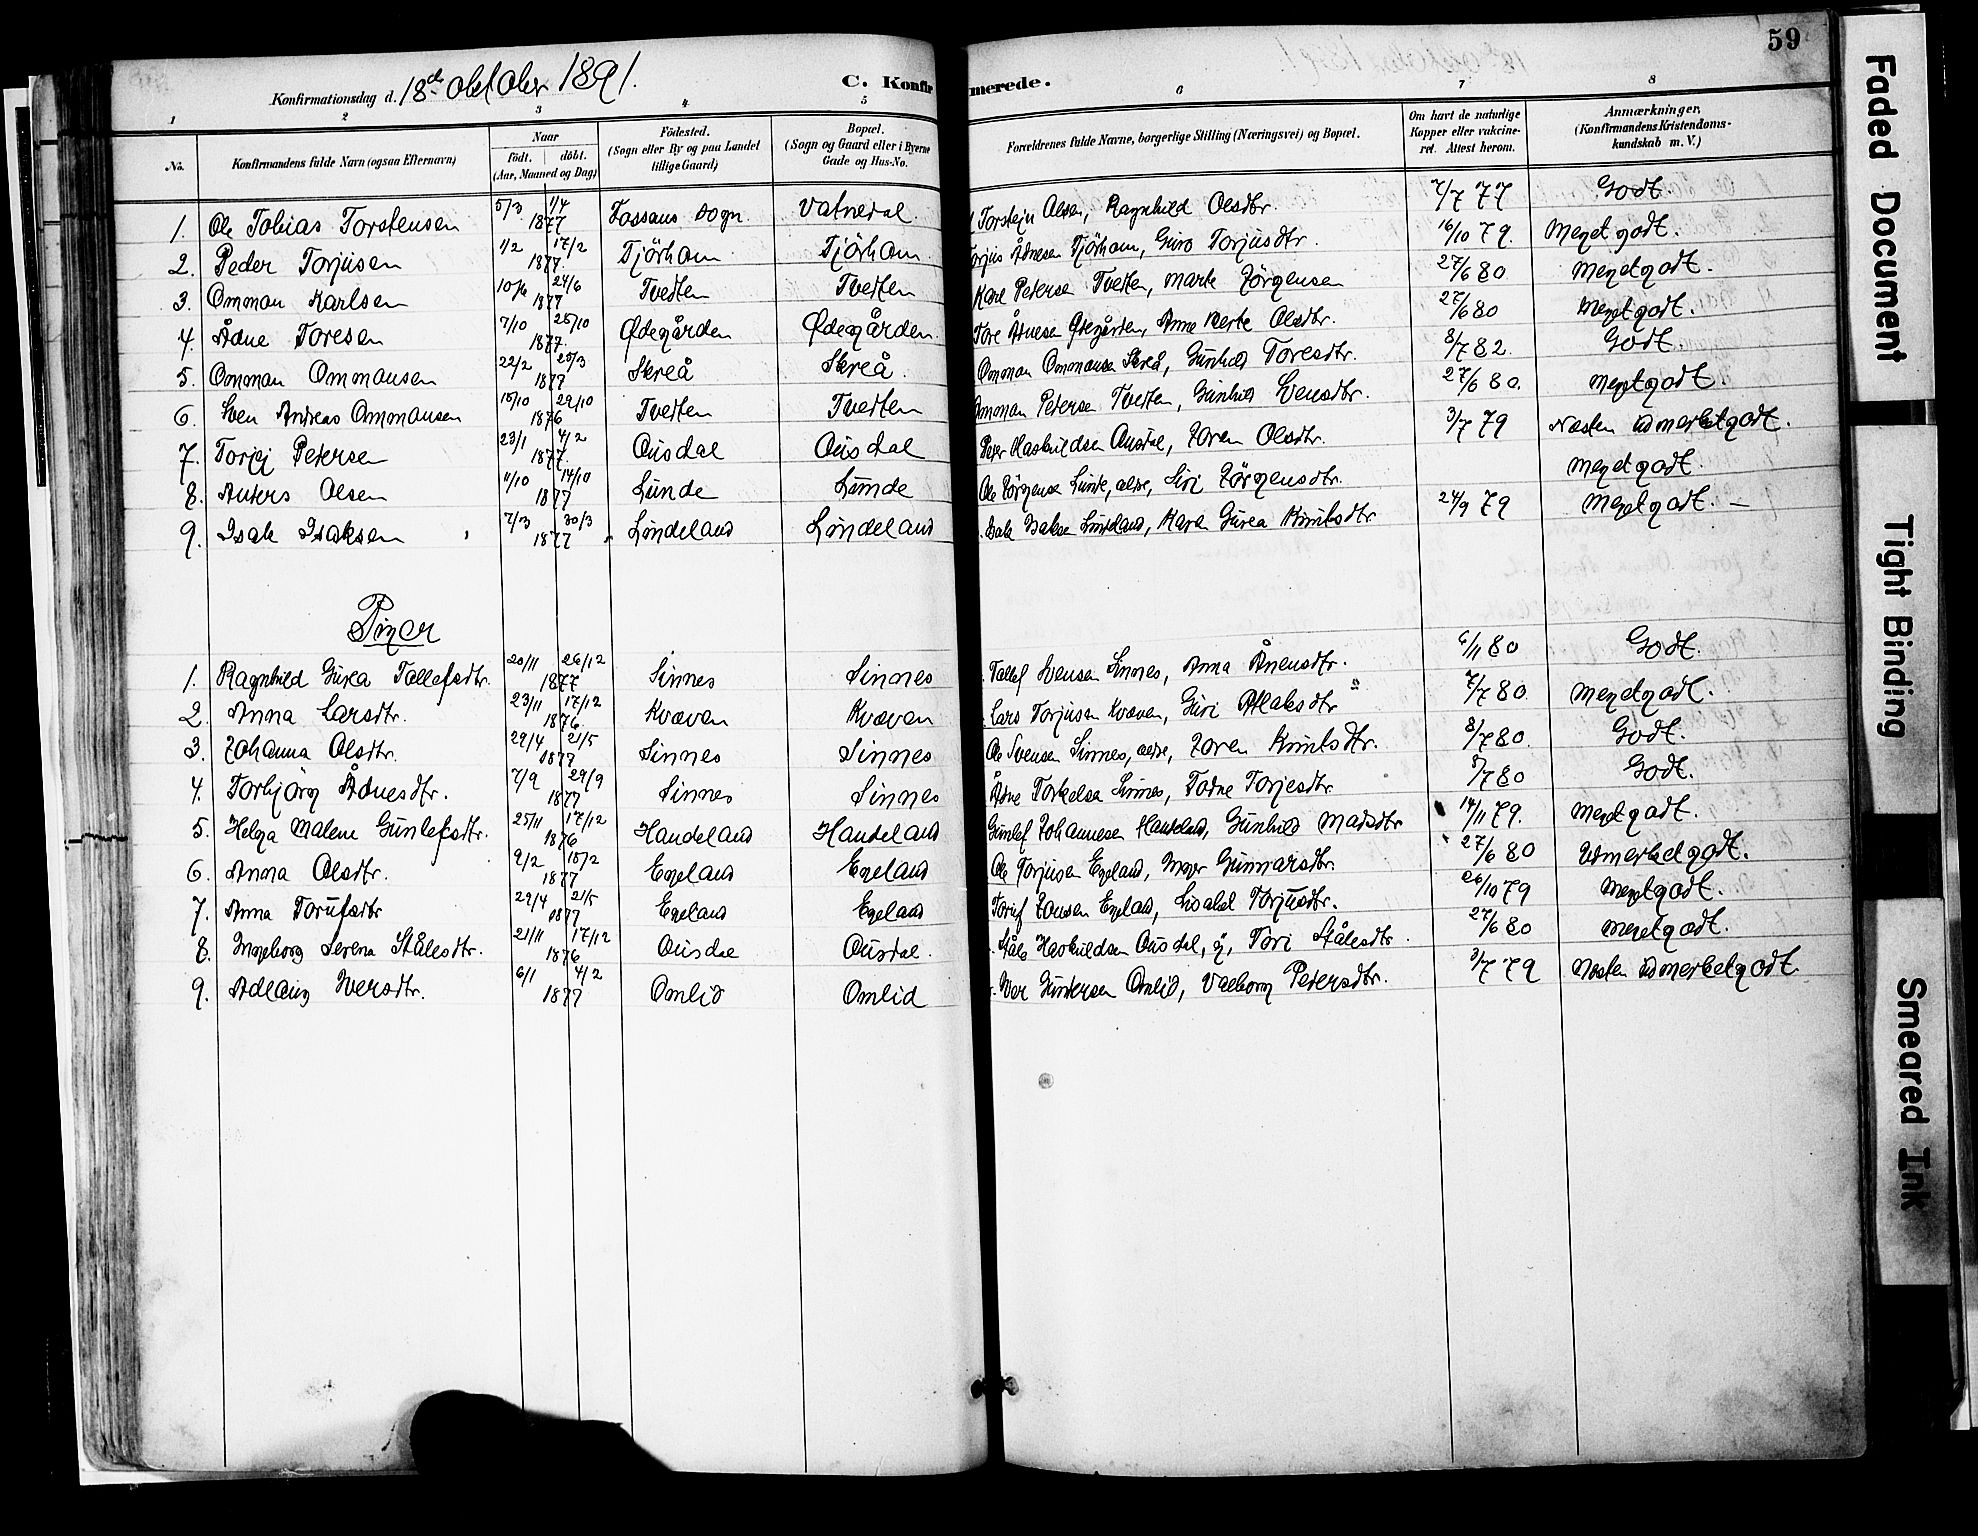 59
Konfirmationsdag d. 18de oktober 1891.
C. Konfirmerede.
1 2 3 4 5 6 7 8
No. Konfirmandens fulde Navn (ogsaa Efternavn) Naar födt. döbt. (Aar, Maaned og Dag) Födested. (Sogn eller By og paa Landet tillige Gaard) Bopæl. (Sogn og Gaard eller i Byerne Gade og Hus-No. Forældrenes fulde Navne, borgerlige Stilling (Næringsvei) og Bopæl. Om havt de naturlige Kopper eller vakcineret. Attest herom. Anmærkninger. (Konfirmandens Kristendomskundskab m. V.)
1. Ole Tobias Torstensen 5/3 1/4 1877 Fossans Sogn Vatnedal Torstein Olsen, Ragnhild Olsdtr. 7/7 77 Godt
2. Peder Torjusen 1/2 17/2 1877 Tjörhom Tjörhom Torjus Ådnesen Tjörhom, Guro Torjusdtr. 16/10 79. Meget godt.
3. Omman Karlsen 10/6 24/6 1877 Tvedten Tvedten Karl Petersen Tvedten, Marte Jörgensen 27/6 80 Meget godt.
4. Ådne Toresen 7/10 25/10 1877 Ødegården Ødegården Tore Ådnesen Ødegården, Anne Merte Olsdtr. 27/6 80 Meget godt.
5. Omman Ommansen 22/2 25/3 1877 Skreå Skreå. Omman Ommansen Skreå, Gunhild Toresdtr. 8/7 82. Godt.
6. Sven Andreas Ommansen 15/10 29/10 1876 Tvedten Tvedten Omman Petersen Tvedten, Gunhild Svensdtr. 27/6 80. Meget godt.
7. Torjej Petersen 23/1 4/2 1877 Ousdal Ousdal Peder Haskuldsen Ousdal, Joren Olsdtr. 3/7 79 Næsten udmerket godt.
8. Anders Olsen 11/10 14/10 1877 Lunde Lunde Ole Jörgensen Lunde, ældre, Siri Jörgensdtr. Meget godt.
9. Isak Isaksen 7/3 30/3 1877 Lindeland Lindeland Isak Isaksen Lindeland, Karen Gurea Knutsdtr. 24/9 79 Meget godt. —
Piger
1. Ragnhild Gurea Tallefsdtr. 20/11 26/12 1877 Sinnes Sinnes Tallef Svensen Sinnes, Anna Ånensdtr. 6/11 80 Godt.
2. Anna Larsdtr. 23/11 17/12 1876 Kvæven Kvæven Lars Torjusen Kvæven, Guri Aslaksdtr 7/7 80. Meget godt.
3. Johanna Olsdtr. 29/4 21/5 1877 Sinnes Sinnes Ole Svensen Sinnes, ældre, Joren Knutsdtr. 8/7 80. Godt.
4. Torbjörg Ådnesdtr. 7/9 29/9 1877 Sinnes Sinnes Ådne Torkelsen Sinnes, Todne Torjesdtr /7 80 Godt.
5. Helga Malene Gunlefsdtr. 25/11 17/12 1876 Haudeland Haudeland Gunlef Johannesen Haudeland, Gunhild Madsdtr 14/11 79. Meget godt.
6. Anna Olsdtr. 9/2 18/2 1877 Egeland Egeland Ole Torjusen Egeland, Inger Gunnarsdtr. 27/6 80 Udmerket godt.
7. Anna Torufsdtr 29/4 21/5 1877 Egeland Egeland Toruf Jonsen Egeland, Lisabet Torjusdtr. 26/10 79 Meget godt.
8. Ingeborg Serena Stålesdtr. 21/11 17/12 1876 Ousdal Ousdal. Ståle Haskuldsen Ousdal, y., Tori Stålesdtr. 27/6 80 Meget godt.
9. Adlaug Iversdtr. 6/1 4/2 1877 Omlid Omlid Iver Gundersen Omlid, Valborg Petersdtr. 3/7 79 Næsten udmerket godt.
Faded Document
Tight Binding
Smeared Ink